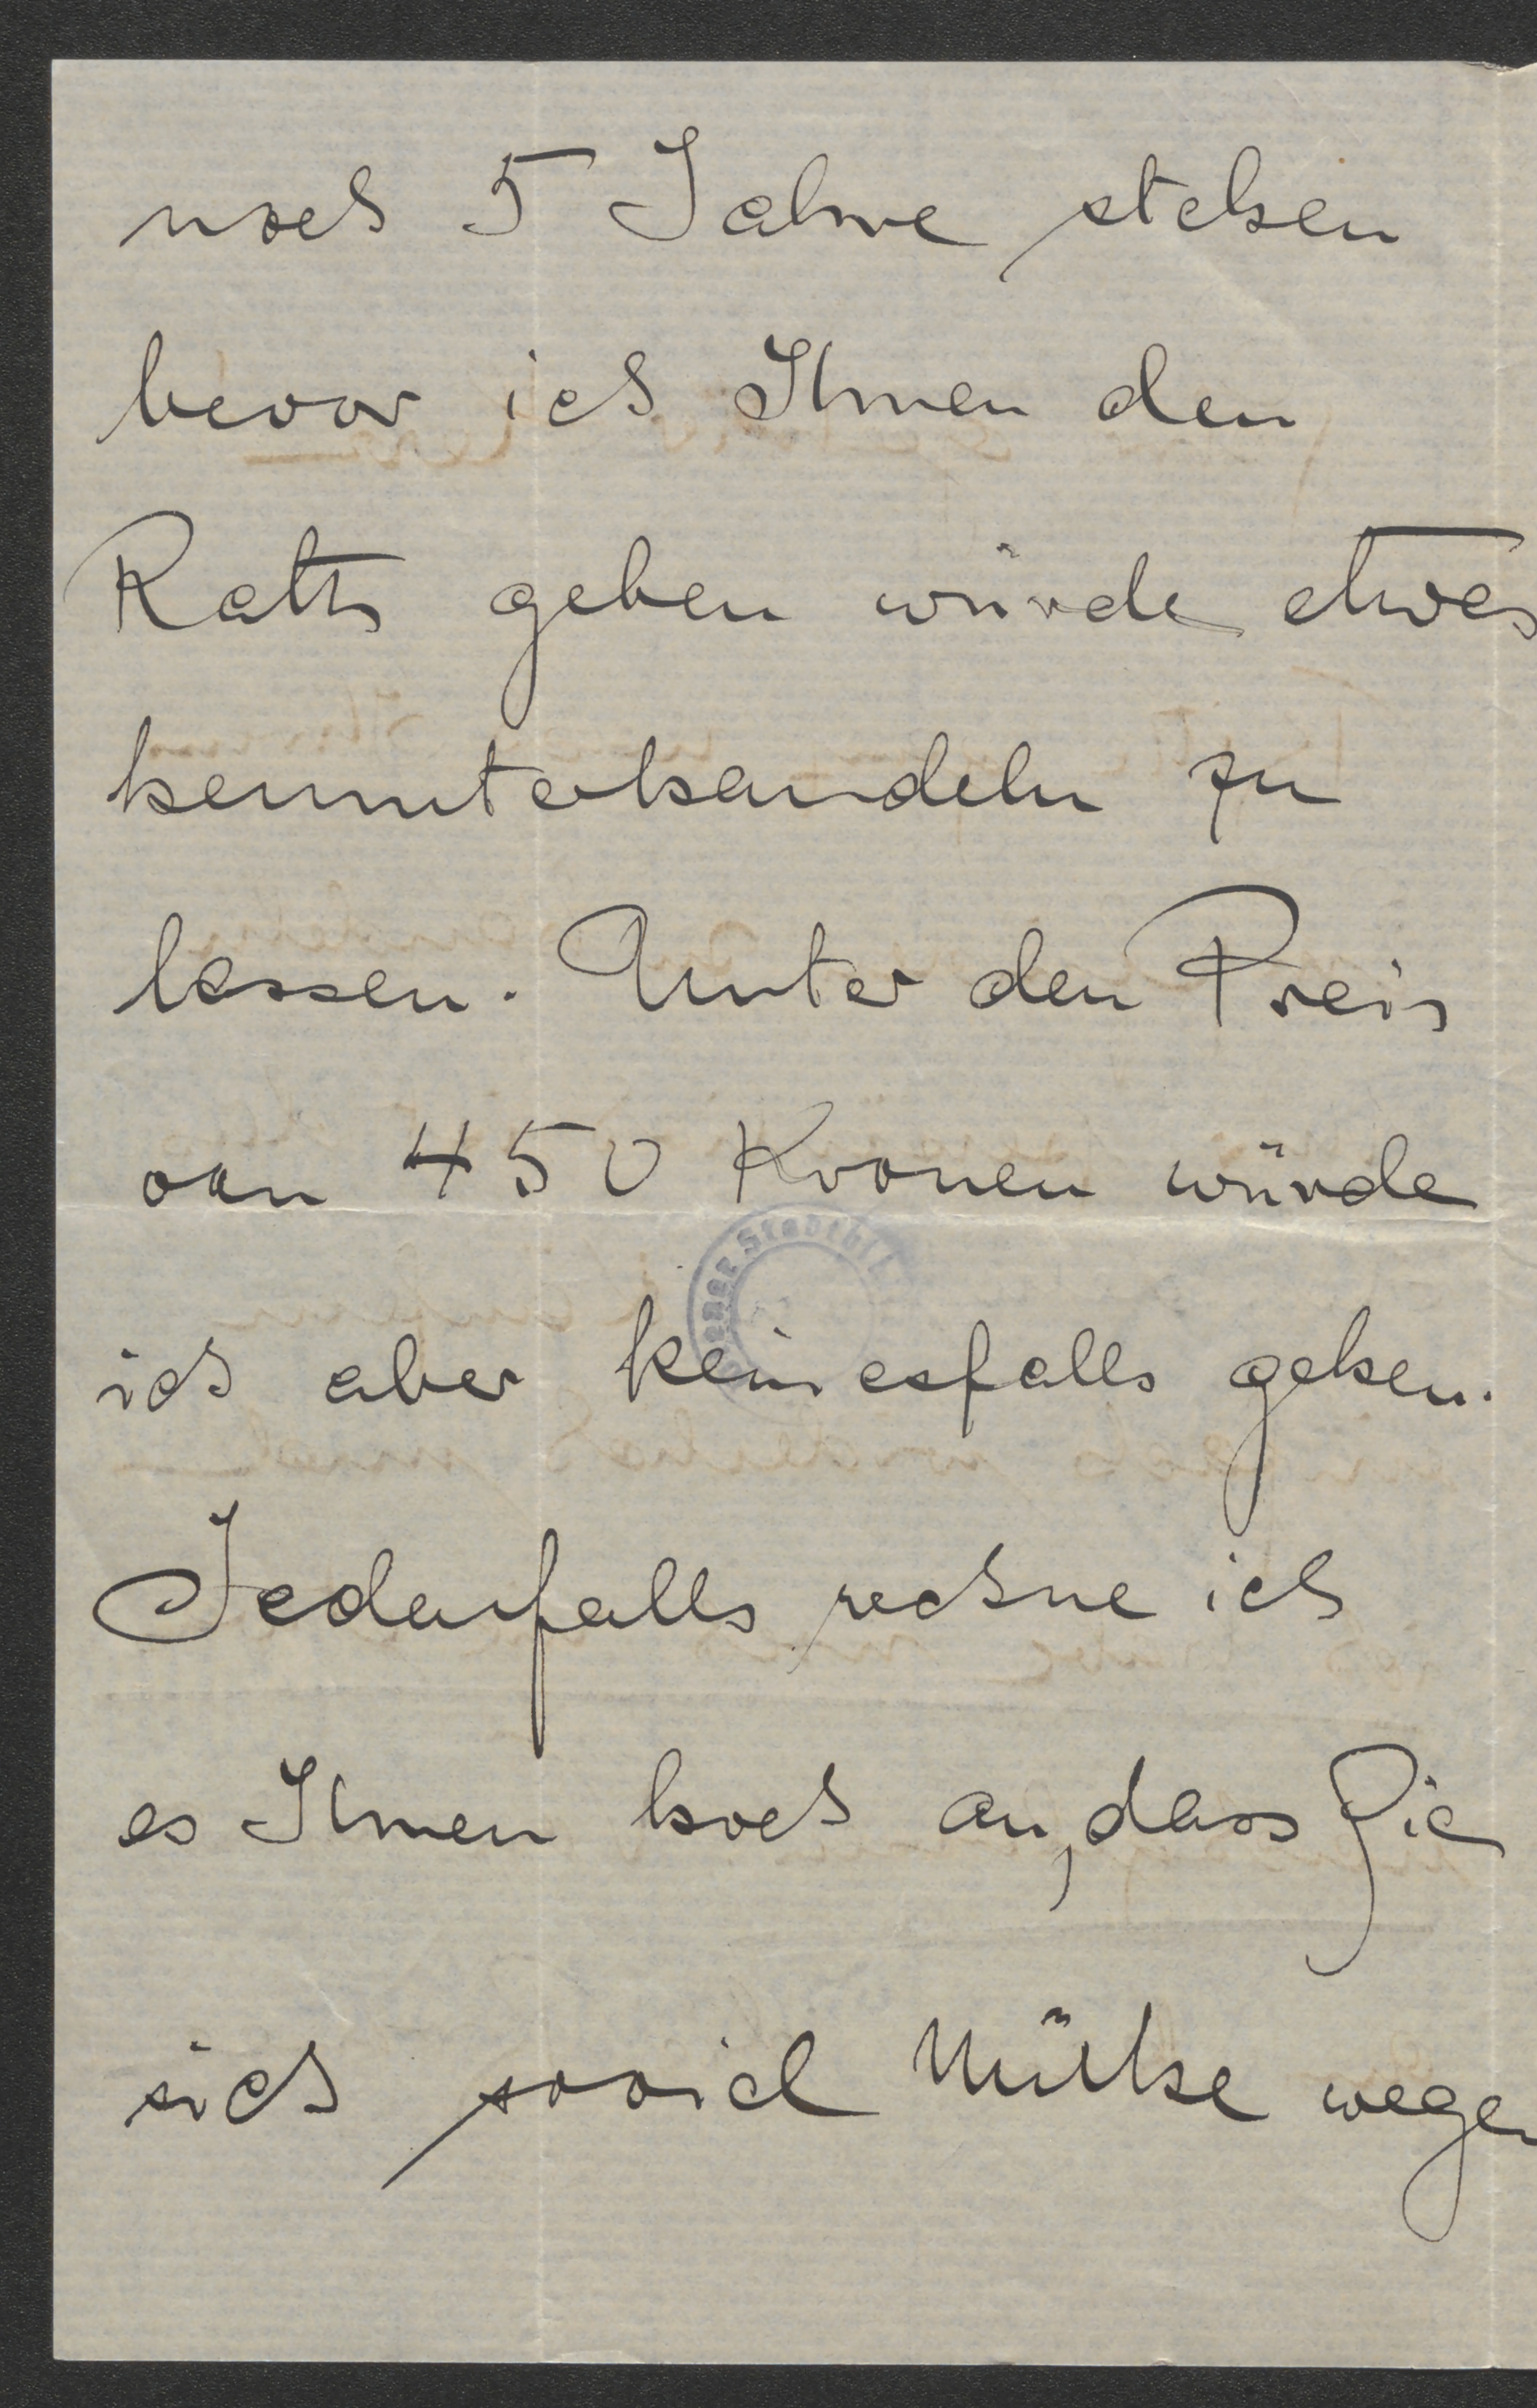 noch 5 Jahre stehen
bevor ich Ihnen den
Rath geben würde etwas
herunterhandeln zu
lassen. Unter den Preis
von 450 Kronen würde
ich aber keinesfalls gehen.
Jedenfalls rechne ich
es Ihnen hoch an, dass Sie
sich soviel Mühe wegen